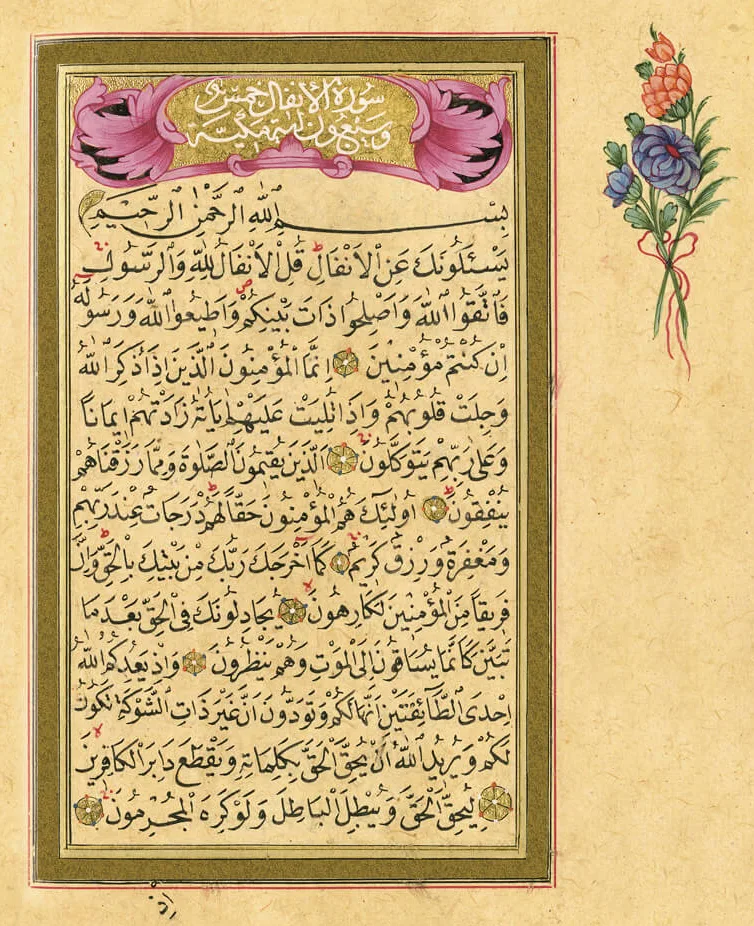 سورة الانفال خمس
وسبعون ايه مكية
بِسْمِ اللّٰهِ الرَّحْمٰنِ الرَّحِيمِ
يَسْـَٔلُونَكَ عَنِ الْاَنْفَالِ قُلِ الْاَنْفَالُ لِلّٰهِ وَالرَّسُولِ
فَاتَّقُوا اللّٰهَ وَاَصْلِحُوا ذَاتَ بَيْنِكُمْ وَاَطِيعُوا اللّٰهَ وَرَسُولَهُ
اِنْ كُنْتُمْ مُؤْمِنِينَ اِنَّمَا الْمُؤْمِنُونَ الَّذِينَ اِذَا ذُكِرَ اللّٰهُ
وَجِلَتْ قُلُوبُهُمْ وَاِذَا تُلِيَتْ عَلَيْهِمْ اٰيَاتُهُ زَادَتْهُمْ اِيمَانًا
وَعَلٰى رَبِّهِمْ يَتَوَكَّلُونَ اَلَّذِينَ يُقِيمُونَ الصَّلٰوةَ وَمِمَّا رَزَقْنَاهُمْ
يُنْفِقُونَ اُولٰئِكَ هُمُ الْمُؤْمِنُونَ حَقًّا لَهُمْ دَرَجَاتٌ عِنْدَ رَبِّهِمْ
وَمَغْفِرَةٌ وَرِزْقٌ كَرِيمٌ كَمَا اَخْرَجَكَ رَبُّكَ مِنْ بَيْتِكَ بِالْحَقِّ وَاِنَّ
فَرِيقًا مِنَ الْمُؤْمِنِينَ لَكَارِهُونَ يُجَادِلُونَكَ فِى الْحَقِّ بَعْدَ مَا
تَبَيَّنَ كَاَنَّمَا يُسَاقُونَ اِلَى الْمَوْتِ وَهُمْ يَنْظُرُونَ وَاِذْ يَعِدُكُمُ اللّٰهُ
اِحْدَى الطَّائِفَتَيْنِ اَنَّهَا لَكُمْ وَتَوَدُّونَ اَنَّ غَيْرَ ذَاتِ الشَّوْكَةِ تَكُونُ
لَكُمْ وَيُرِيدُ اللّٰهُ اَنْ يُحِقَّ الْحَقَّ بِكَلِمَاتِهِ وَيَقْطَعَ دَابِرَ الْكَافِرِينَ
لِيُحِقَّ الْحَقَّ وَيُبْطِلَ الْبَاطِلَ وَلَوْ كَرِهَ الْمُجْرِمُونَ
اِذْ